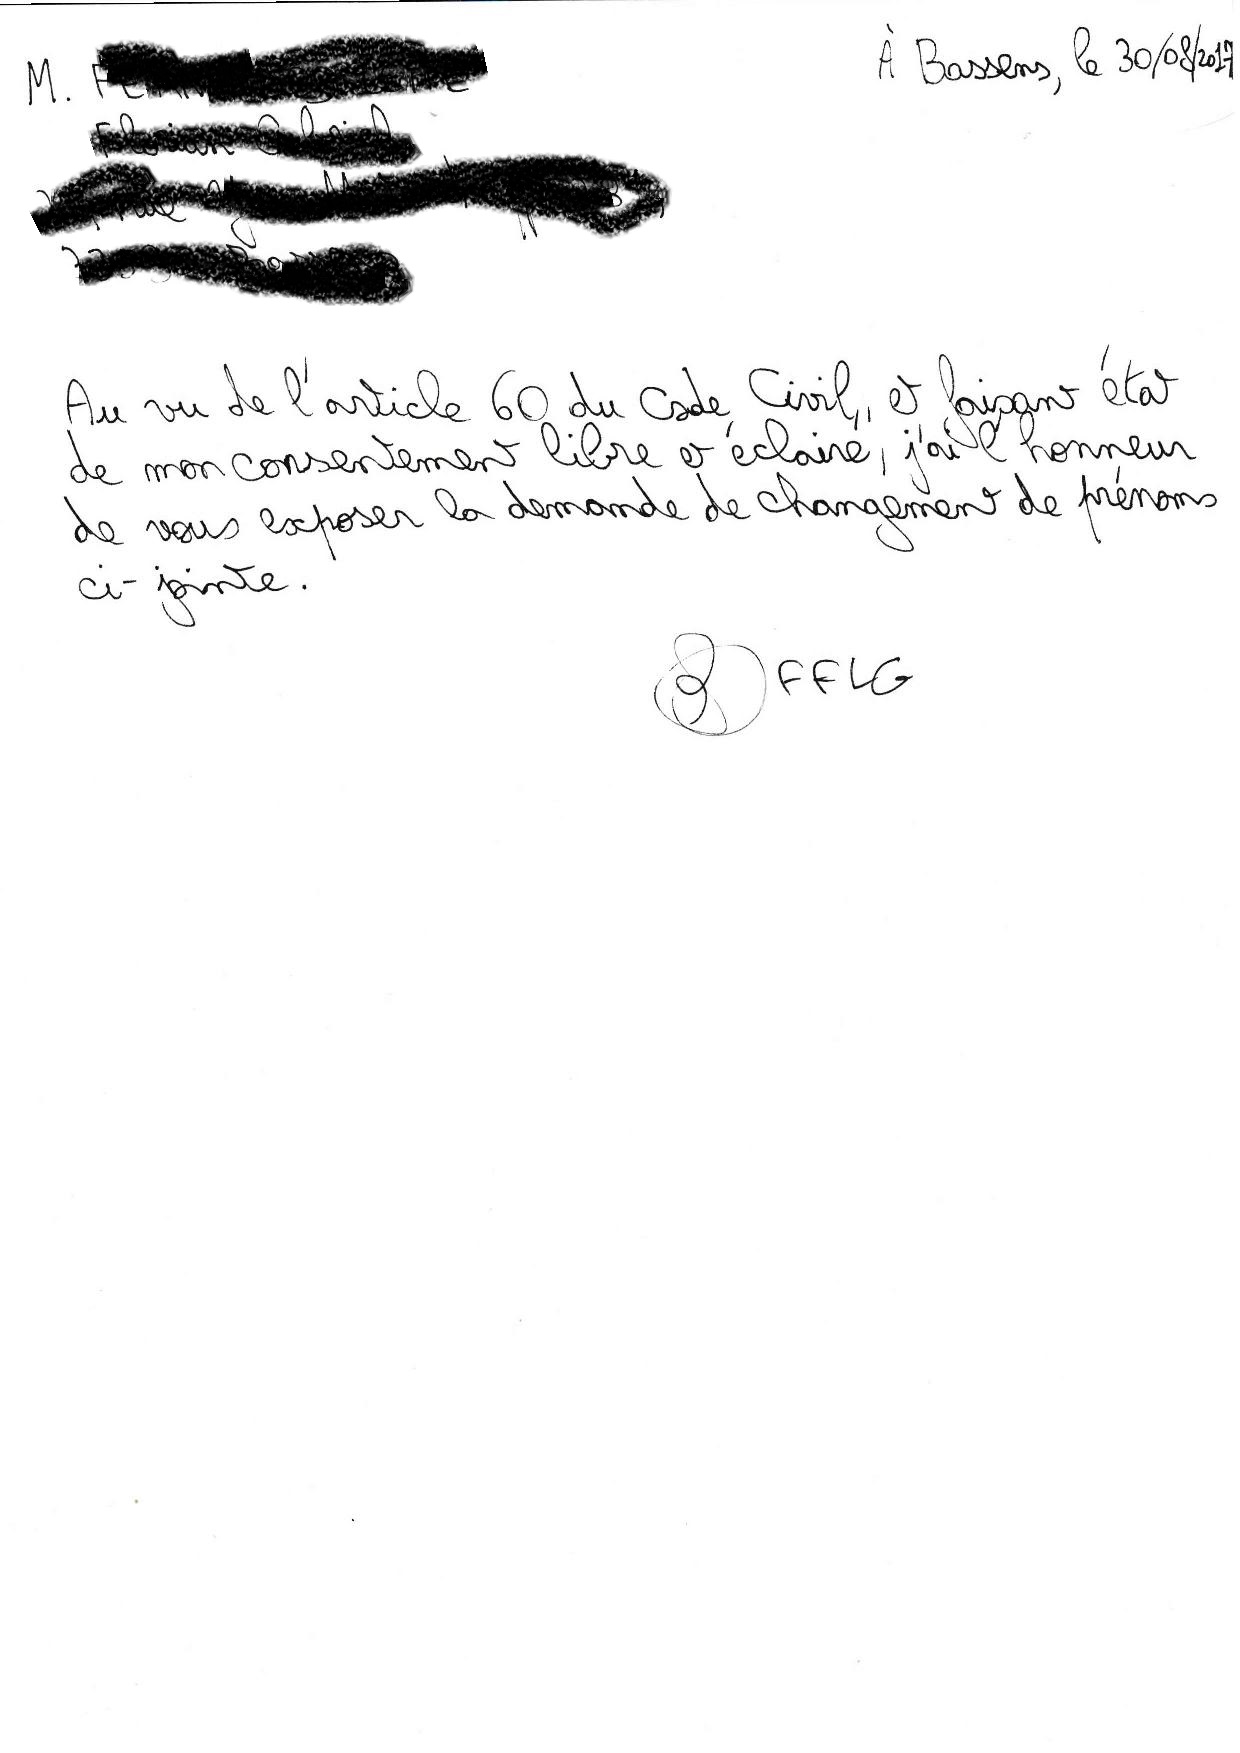 M.
À Bassens, le 30/08/2017
Au vu de l'article 60 du Code Civil, et faisant état
de mon consentement libre et éclairé, j'ai l'honneur
de vous exposer la demande de changement de prénoms
ci-jointe.
FFLG